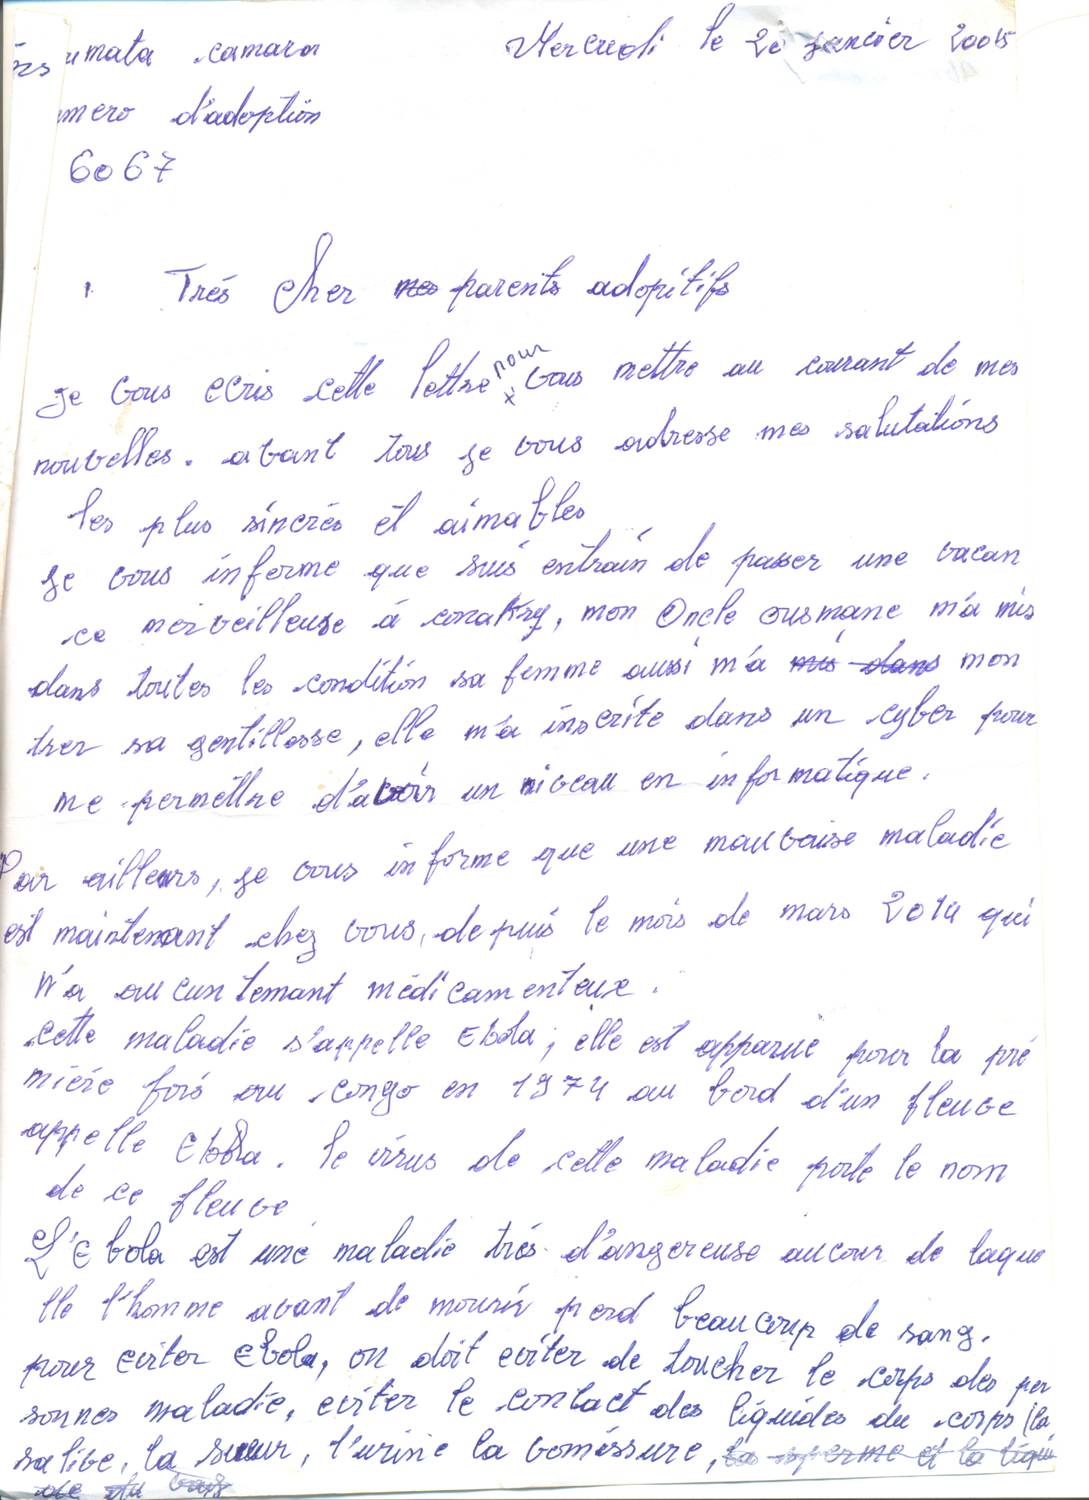 umata camara Mercredi le 20 janvier 20015
mero d'adoption
6067
Trés cher mes parents adopitifs
je vous ecris cette lettre pour vous mettre au courant de mes
nouvelles. avant tous je vous adresse mes salutations
les plus sincrés et aimables
je vous informe que suis entrain de passer une vacan
ce merveilleuse à conakry, mon Oncle ousmane m'a mis
dans toutes les condition sa femme aussi m'a mis dans mon
trer sa gentillesse, elle m'a inscrite dans un cyber pour
me permettre d'avoir un niveau en informatique.
Par ailleurs, je vous informe que une mauvaise maladie
est maintenant chez vous, depuis le mois de mars 2014 qui
n'a aucun temant médicamenteux.
cette maladie s'appelle Ebola; elle est apparue pour la pré
mière fois au congo en 1974 au bord d'un fleuve
appelle Ebola. le virus de cette maladie porte le nom
de ce fleuve
L'Ebola est une maladie trés d'angereuse aucour de laque
lle l'homme avant de mourir perd beaucoup de sang.
pour eviter Ebola, on doit eviter de toucher le corps des per
sonnes maladie, eviter le contact des liquides du corps (la
salive, la sueur, l'urine la vomissure, la sperme et la liqui
de du